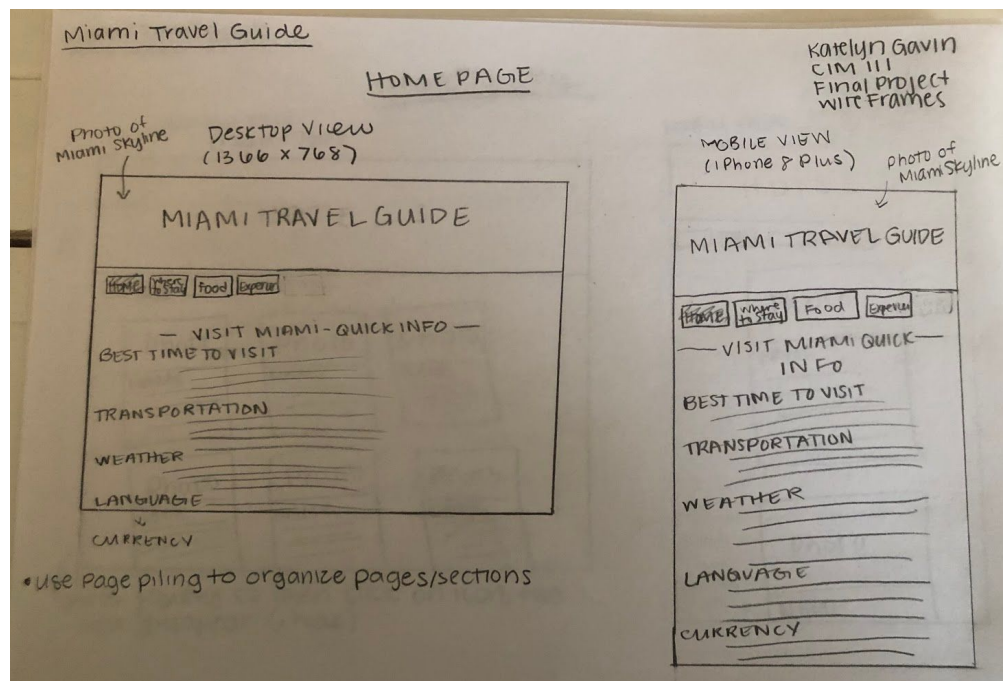 Miami Travel Guide
HOME PAGE
Katelyn Gavin
CIM 111
Final Project
Wire Frames
Photo of
Miami Skyline
Desktop View
(1366 x 768)
MIAMI TRAVEL GUIDE
HOME
Where
to Stay
Food
Experien
— VISIT MIAMI - QUICK INFO —
BEST TIME TO VISIT
TRANSPORTATION
WEATHER
LANGUAGE
CURRENCY
• use page piling to organize pages/sections
MOBILE VIEW
(iPhone 8 Plus)
photo of
Miami Skyline
MIAMI TRAVEL GUIDE
HOME
Where
to Stay
Food
Experien
— VISIT MIAMI QUICK —
INFO
BEST TIME TO VISIT
TRANSPORTATION
WEATHER
LANGUAGE
CURRENCY